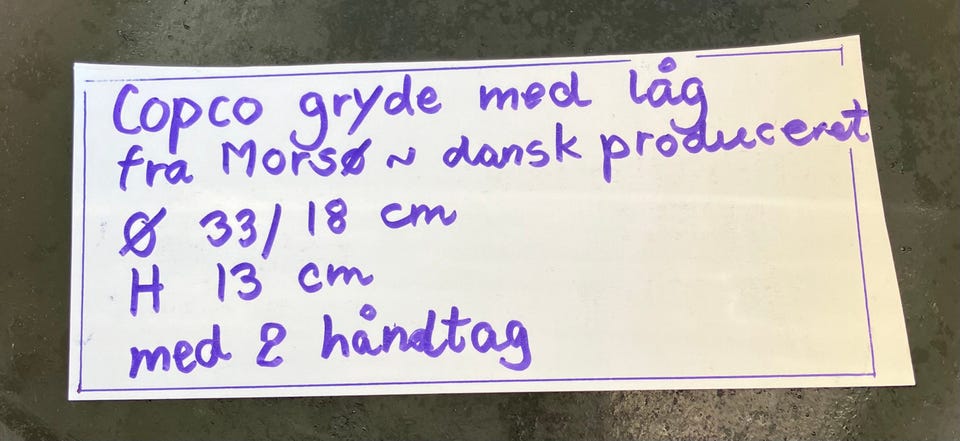 Copco gryde med låg
fra Morsø ~ dansk produceret
Ø 33/18 cm
H 13 cm
med 2 håndtag